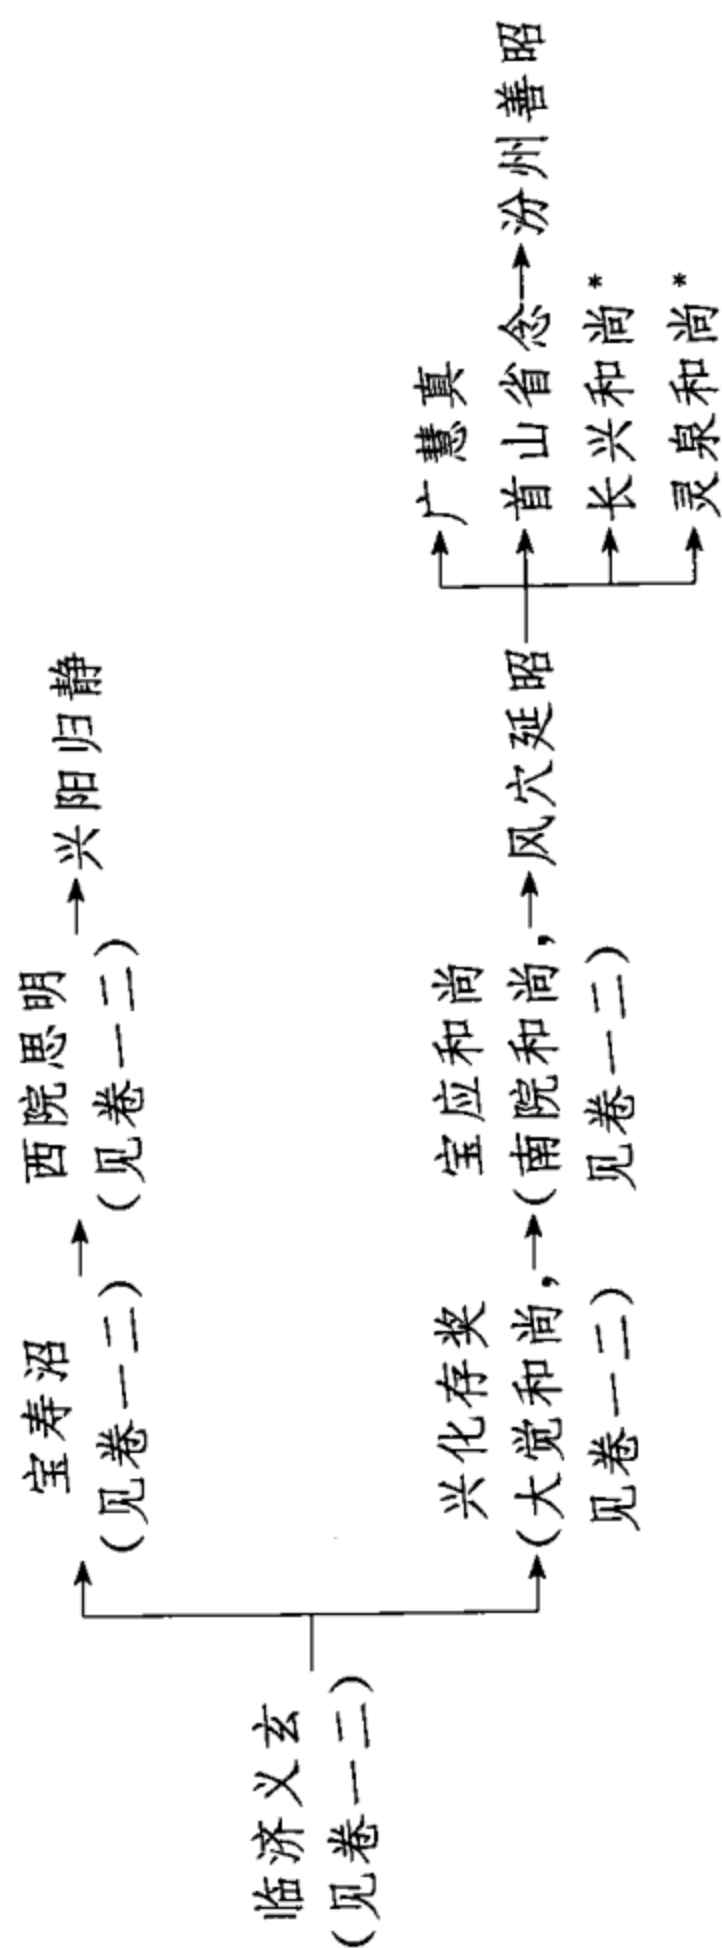 临济义玄
(见卷一二)
宝寿沼
(见卷一二)
西院思明
(见卷一二)
兴阳归静
兴化存奖
(大觉和尚,
见卷一二)
宝应和尚
(南院和尚,
见卷一二)
风穴延昭
广慧真
首山省念
汾州善昭
长兴和尚*
灵泉和尚*